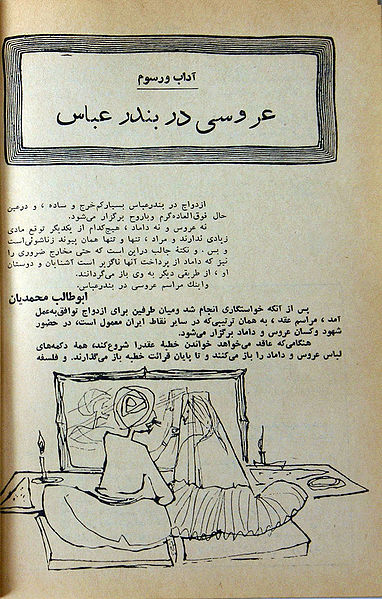 آداب ورسوم
عروسی در بندر عباس
ازدواج در بندرعباس بسیارکم‌خرج و ساده ، و درعین
حال فوق‌العاده‌گرم وباروح برگزار می‌شود.
نه عروس و نه داماد ، هیچ‌کدام از یکدیگر توقع مادی
زیادی ندارند و مراد ، تنها و تنها همان پیوند زناشوئی‌است
و بس . و نکتهٔ جالب دراین است که حتی مخارج ضروری را
نیز که داماد از پرداخت آنها ناگزیر است آشنایان و دوستان
او ، از طریقی دیگر به وی باز می‌گردانند.
واینك مراسم عروسی در بندرعباس.
ابوطالب محمدیان
پس از آنکه خواستگاری انجام شد ومیان طرفین برای ازدواج توافق‌به‌عمل
آمد ، مراسم عقد ، به همان ترتیبی‌که در سایر نقاط ایران معمول است، در حضور
شهود وکسان عروس و داماد برگزار می‌شود.
هنگامی‌که عاقد می‌خواهد خواندن خطبهٔ عقدرا شروع‌کند، همهٔ دکمه‌های
لباس عروس و داماد را باز می‌کنند و تا پایان قرائت خطبه باز می‌گذارند. و فلسفهٔ